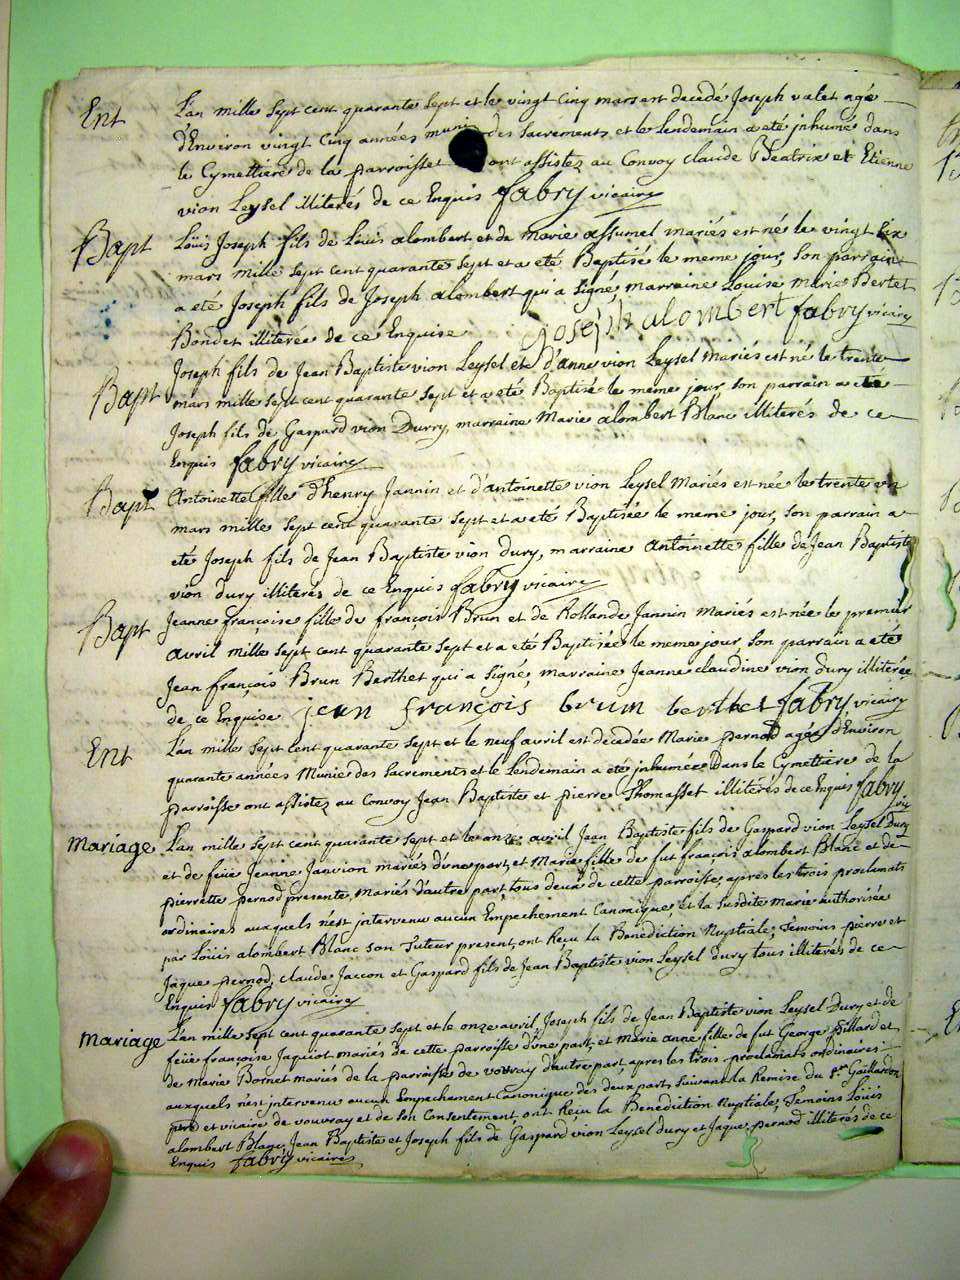 Ent L'an mille sept cent quarante sept et le vingt cinq mars est decedé Joseph valet agé
d'Environ vingt Cinq années muni des sacrements et le lendemain a eté jnhumé dans
le Cymettiere de la parroisse ont assistez au Convoy claude Beatrix et Etienne
vion Leysel illiterés de ce Enquis fabry vicaire
Bapt Loüis Joseph fils de Loüis alombert et de marie assumel mariés est né le vingt six
mars mille sept cent quarante sept et a eté Baptisé le meme jour, son parrain
a eté Joseph fils de Joseph alombert qui a signé, marraine Louise marie Bertet
Bondet illiterée de ce Enquise joseph alombert fabry vicaire
Bapt Joseph fils de Jean Baptiste vion Leysel et d'anne vion Leysel mariés est né le trente
mars mille sept cent quarante sept et a eté Baptisé le meme jour, son parrain a eté
Joseph fils de Gaspard vion Durry, marraine Marie alombert Blanc illiterés de ce
Enquis fabry vicaire
Bapt Antoinette fille d'henry Jannin et d'antoinette vion Leysel Mariés est née le trente un
mars mille sept cent quarante sept et a eté Baptisée le meme jour, son parrain a
eté Joseph fils de Jean Baptiste vion dury, marraine antoinette fille de Jean Baptiste
vion dury illiterés de ce Enquis fabry vicaire
Bapt Jeanne françoise fille de françois Brun et de Rollande Jannin mariés est née le premier
avril mille sept cent quarante sept et a eté Baptisée le meme jour, son parrain a eté
Jean françois Brun Berthet qui a signé, marraine Jeanne claudine vion dury illiterée
de ce Enquise jean françois brum berthet fabry vicaire
Ent L'an mille sept cent quarante sept et le neuf avril est decedée Marie pernod agée d'Environ
quarante années Munie des sacrements et le lendemain a eté jnhumée dans le Cymettiere de la
parroisse ont assistez au Convoy Jean Baptiste et pierre Thomasset illiterés de ce Enquis fabry
vic
Mariage L'an mille sept cent quarante sept et le onze avril Jean Baptiste fils de Gaspard vion Leysel Dury
et de feüe Jeanne Janvion mariés d'une part, et Marie fille de fut françois alombert Blanc et de
pierrette pernod presente, mariés d'autre part, tous deux de cette parroisse, apres les trois proclamats
ordinaires auxquels n'est jntervenu aucun Empechement Canonique, et la susdite Marie authorisée
par Loüis alombert Blanc son Tuteur present, ont Reçu la Benediction Nuptiale, Temoins pierre et
Jaque pernod, claude Jaccon et Gaspard fils de Jean Baptiste vion Leysel dury tous illiterés de ce
Enquis fabry vicaire
Mariage L'an mille sept cent quarante sept et le onze avril Joseph fils de Jean Baptiste vion Leysel Dury et de
feüe françoise Jaquiot mariés de cette parroisse d'une part, et Marie anne fille de fut George Pillard et
de Marie Bornet mariés de la parroisse de vouvray d'autre part, apres les trois proclamats ordinaires
auxquels n'est jntervenu aucun Empechament Canonique des deux parts, suivant la Remise du Sr Gaillardon
pre et vicaire de vouvray et de son Consentement, ont Reçu la Benediction Nuptiale, Temoins Loüis
alombert Blanc, Jean Baptiste et Joseph fils de Gaspard vion Leysel dury et Jaque pernod illiterés de ce
Enquis fabry vicaire